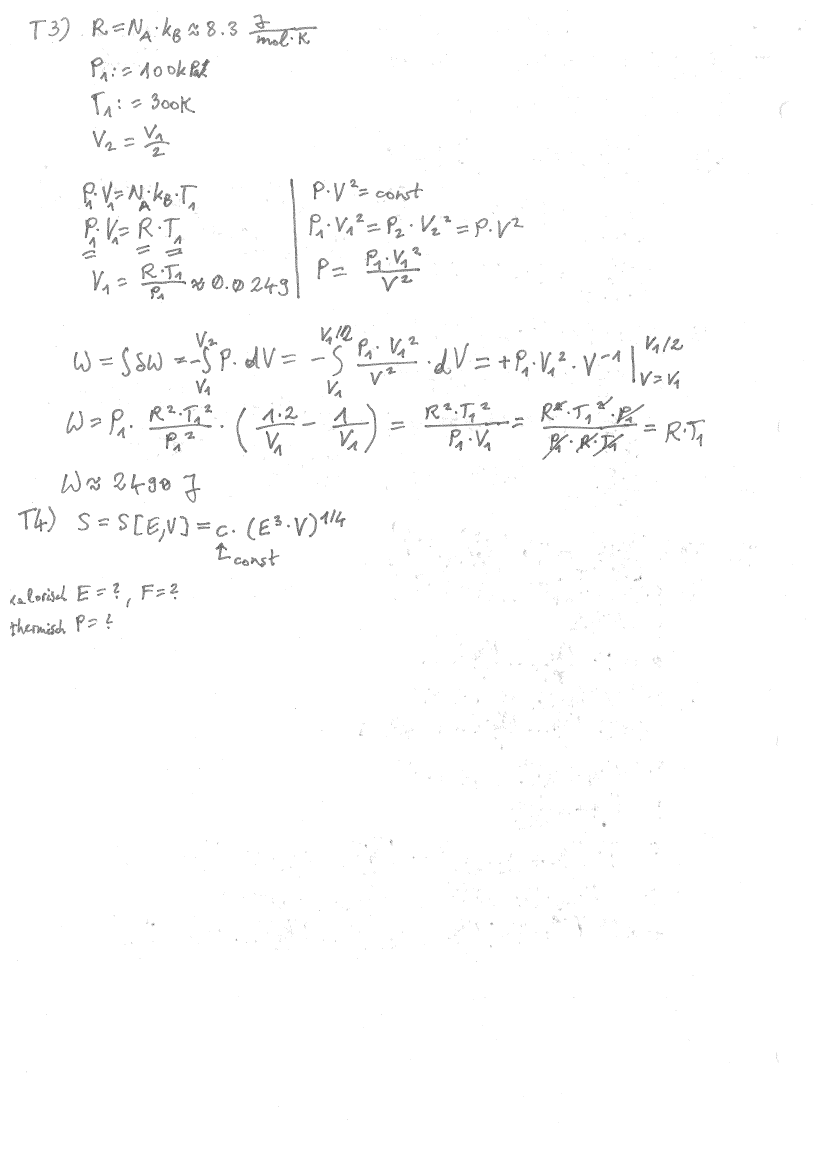 T3) R = N_A·k_B ≈ 8.3 J/(mol·K)
P₁ := 100kPa
T₁ := 300K
V₂ = V₁/2
P₁·V₁ = N_A·k_B·T₁
P₁·V₁ = R·T₁
V₁ = R·T₁/P₁ ≈ 0.0249
P·V² = const
P₁·V₁² = P₂·V₂² = P·V²
P = P₁·V₁²/V²
W = ∫δW = -∫_{V₁}^{V₂} P·dV = -∫_{V₁}^{V₁/2} P₁·V₁²/V² · dV = +P₁·V₁²·V⁻¹ |_{V=V₁}^{V₁/2}
W = P₁· R²·T₁²/P₁² · (1·2/V₁ - 1/V₁) = R²·T₁²/(P₁·V₁) = R²·T₁²·P₁/(P₁·R·T₁) = R·T₁
W ≈ 2490 J
T4) S = S[E,V] = c·(E³·V)^{1/4}
↑ const
kalorisch E = ?, F = ?
thermisch P = ?